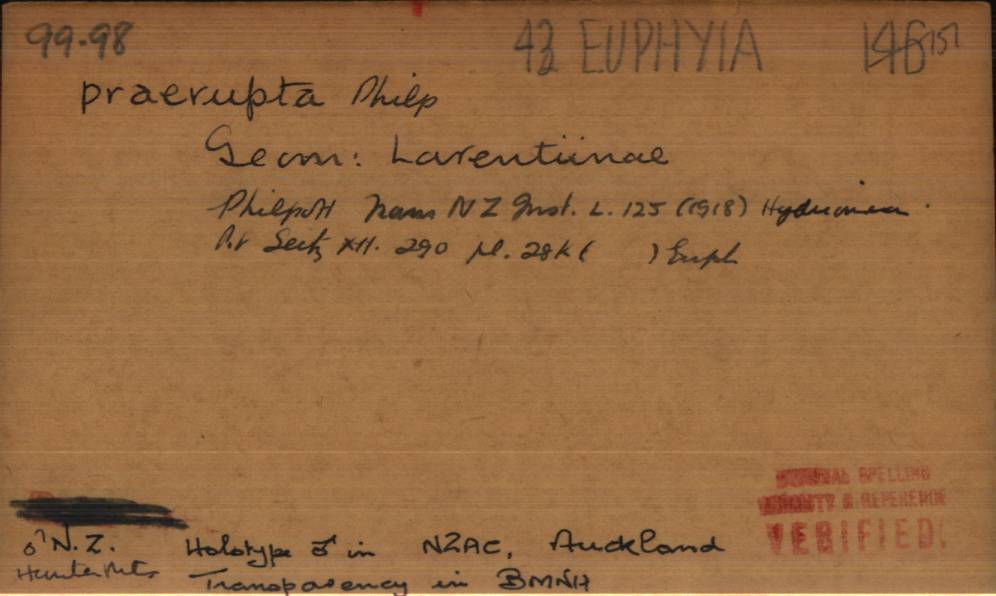 99.98 43 EUPHYIA 146 151
praerupta Philp
Geom: Larentiinae
Philpott Trans NZ Inst. L. 125 (1918) Hydriomena.
Seitz XII. 290 pl. 28k ( ) Euph
ORIGINAL SPELLING
PRIORITY & REFERENCE
VERIFIED.
♂ N.Z. Holotype ♂ in NZAC, Auckland
Hunter Mts Transparency in BMNH